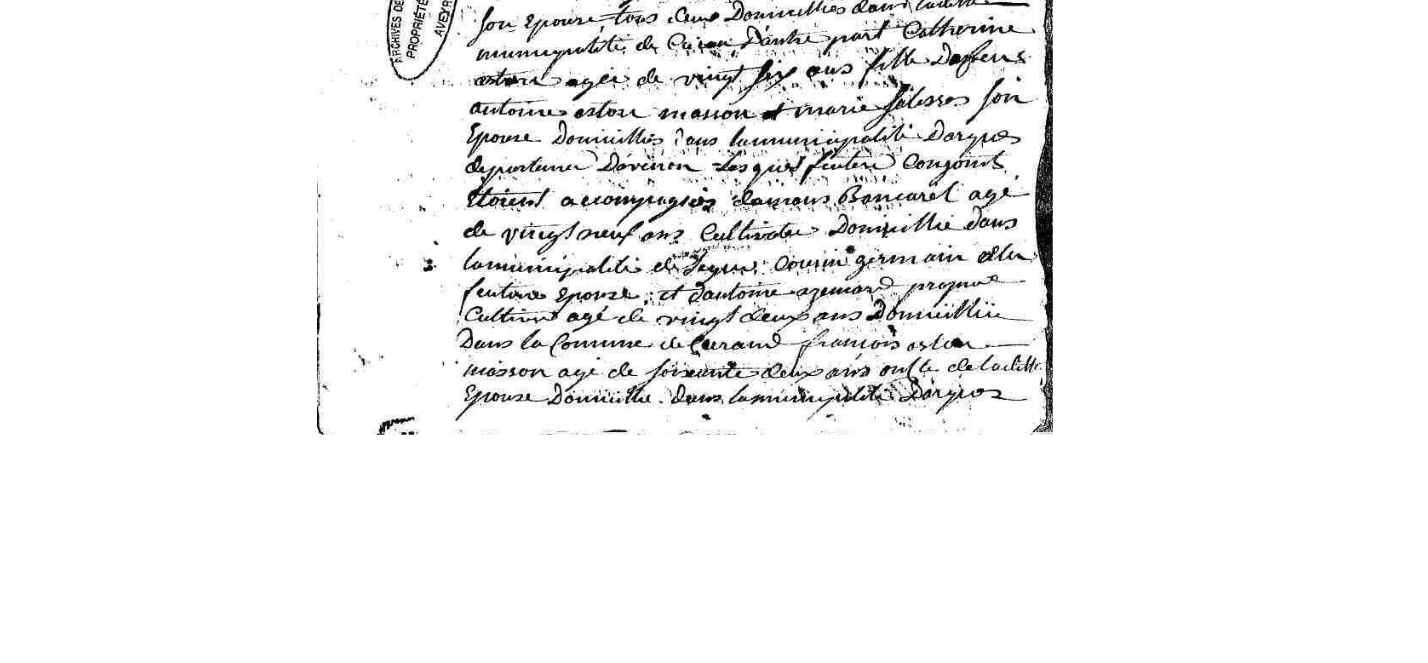 ARCHIVES DE
PROPRIÉTÉ
AVEYR
son Epouse, tous deux Domicilliés dans
municipalité de D'autre part Catherine
aston agée de vingt six ans fille Defeus
antoine aston masson et marie salesses son
Epouse Domicilliés Dans lamunicipalité Darques
departemen Daveiron Lesquels futeurs Conjoints
Etoient accompagnés Bancarel agé
de vingt neuf ans Cultivateur Domicillié dans
lamunicipalité de Segur, Cousin germain dela
future Epouse, et Dantoine azemard
Cultiv agé de vingt deux ans Domicillié
Dans la Commune de Curand francois aston
masson agé de soixante deux ans de laditte
Epouse Domicillié dans lamunicipalité Darques